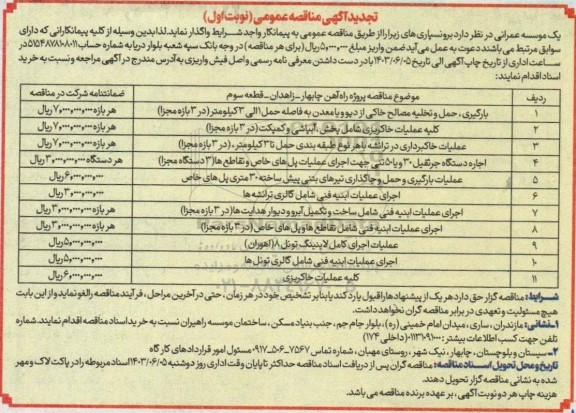 تجدید آگهی مناقصه عمومی (نوبت اول)
یک موسسه عمرانی در نظر دارد برونسپاری های زیر را از طریق مناقصه عمومی به پیمانکار واجد شرایط واگذار نماید. لذا بدین وسیله از کلیه پیمانکارانی که دارای
سوابق مرتبط می باشند دعوت به عمل می آید ضمن واریز مبلغ ۵,۰۰۰,۰۰۰ ریال (برای هر مناقصه) در وجه بانک سپه شعبه بلوار دریا به شماره حساب
ساعت اداری از تاریخ چاپ آگهی الی تاریخ ۱۴۰۳/۰۶/۰۵ با در دست داشتن معرفی نامه رسمی و اصل فیش واریزی به آدرس مندرج در آگهی مراجعه و نسبت به خرید
اسناد اقدام نمایند:
ردیف موضوع مناقصه پروژه راه آهن چابهار_زاهدان_قطعه سوم ضمانتنامه شرکت در مناقصه
۱ بارگیری، حمل و تخلیه مصالح خاکی از دپو و یا معدن به فاصله حمل ۱ الی ۳ کیلومتر (در ۳ بازه مجزا) هر بازه ۷,۰۰۰,۰۰۰,۰۰۰ ریال
۲ کلیه عملیات خاکریزی شامل پخش، آبپاشی و کمپکت (در ۳ بازه مجزا) هر بازه ۷,۰۰۰,۰۰۰,۰۰۰ ریال
۳ عملیات خاکبرداری در ترانشه با هر نوع طبقه بندی حمل تا ۳ کیلومتر، (در ۳ بازه مجزا) هر بازه ۷,۰۰۰,۰۰۰,۰۰۰ ریال
۴ اجاره دستگاه جرثقیل ۳۰ و یا ۵۰ تنی جهت اجرای عملیات پل های خاص و تقاطع ها (۳ دستگاه مجزا) هر دستگاه ۳,۰۰۰,۰۰۰,۰۰۰ ریال
۵ عملیات بارگیری و حمل و جاگذاری تیرهای بتنی پیش ساخته ۳۰ متری پل های خاص ۶,۰۰۰,۰۰۰,۰۰۰ ریال
۶ اجرای عملیات ابنیه فنی شامل گالری ترانشه ها ۳,۰۰۰,۰۰۰,۰۰۰ ریال
۷ اجرای عملیات ابنیه فنی شامل ساخت و تکمیل آبرو و دیوار هدایت ها (در ۳ بازه مجزا) هر بازه ۳,۰۰۰,۰۰۰,۰۰۰ ریال
۸ اجرای عملیات ابنیه فنی شامل تقاطع ها و پل های خاص (در ۳ بازه مجزا) هر بازه ۳,۰۰۰,۰۰۰,۰۰۰ ریال
۹ عملیات اجرای کامل لاینینگ تونل ۸ (اهوران) ۵,۰۰۰,۰۰۰,۰۰۰ ریال
۱۰ اجرای عملیات ابنیه فنی شامل گالری تونل ها ۵,۰۰۰,۰۰۰,۰۰۰ ریال
۱۱ کلیه عملیات خاکریزی ۶,۰۰۰,۰۰۰,۰۰۰ ریال
شرایط: مناقصه گزار حق دارد هر یک از پیشنهادها را قبول یا رد کند یا بنابر تشخیص خود در هر زمان، حتی در آخرین مراحل، فرآیند مناقصه را لغو نماید و از این بابت
هیچ مسئولیت و تعهدی در برابر مناقصه گران نخواهد داشت.
۱_نشانی: مازندران، ساری، میدان امام خمینی (ره)، بلوار جام جم، جنب بنیاد مسکن، ساختمان موسسه راهیران نسبت به خرید اسناد مناقصه اقدام نمایند. شماره
تلفن جهت کسب اطلاعات بیشتر: (داخلی ۱۷۴)
۲_ سیستان و بلوچستان، چابهار، نیک شهر، روستای مهبان، شماره تماس ۷۵۶۷-۵۰۶-۰۹۱۷ مسئول امور قراردادهای کارگاه
تاریخ و محل تحویل اسناد مناقصه: مناقصه گران پس از دریافت اسناد مناقصه حداکثر تا پایان وقت اداری روز دوشنبه ۱۴۰۳/۰۶/۰۵ اسناد مربوطه را در پاکت لاک و مهر
شده به نشانی مناقصه گزار تحویل دهند.
هزینه چاپ هر دو نوبت آگهی، بر عهده برنده مناقصه می باشد.